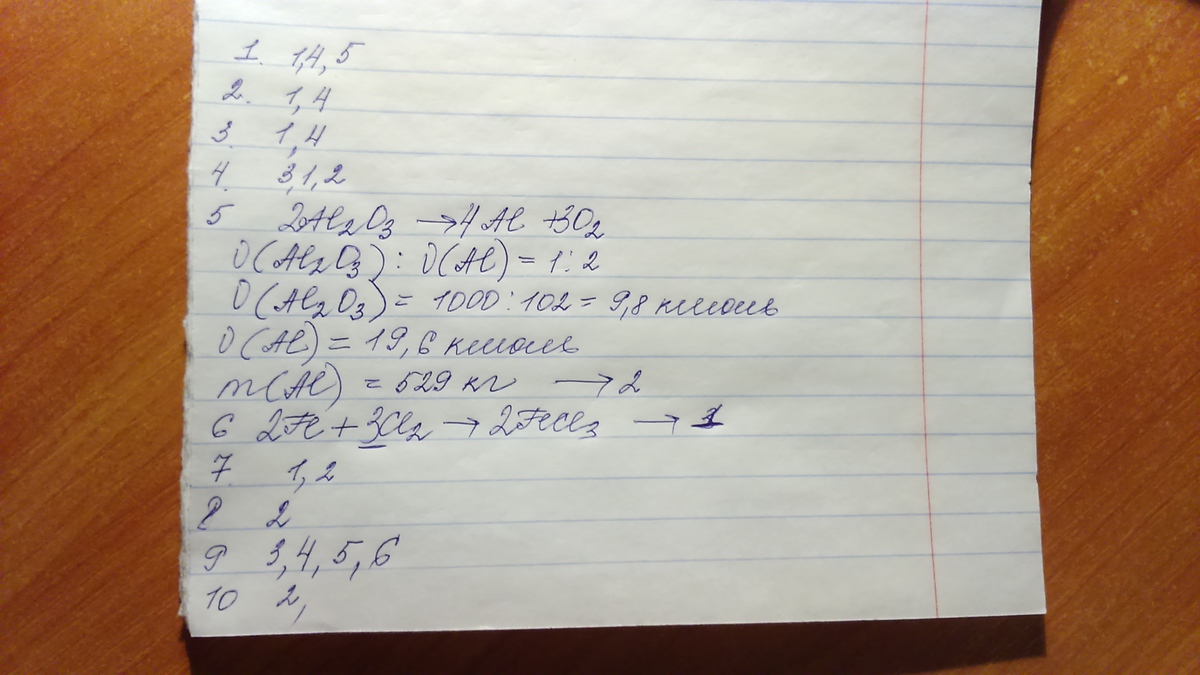 1. 1,4,5
2. 1,4
3. 1,4
4. 3,1,2
5 2Al₂O₃ → 4Al + 3O₂
υ(Al₂O₃) : υ(Al) = 1:2
υ(Al₂O₃) = 1000 : 102 = 9,8 кмоль
υ(Al) = 19,6 кмоль
m(Al) = 529 кг → 2
6 2Fe + 3Cl₂ → 2FeCl₃ →
7. 1,2
8 2
9 3,4,5,6
10 2,